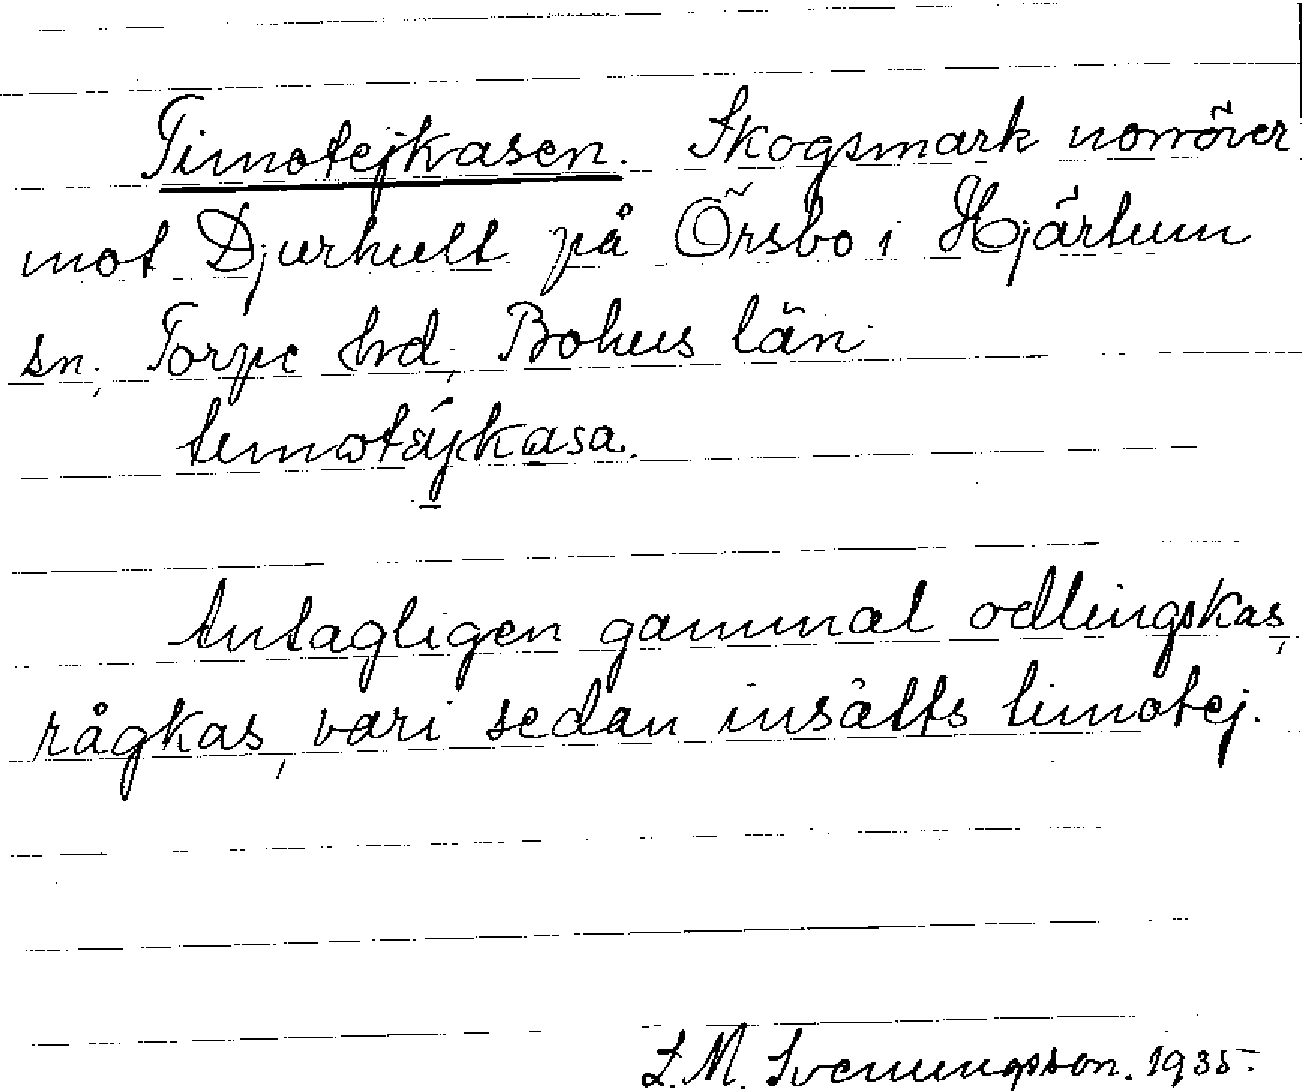 Timotejkasen. Skogsmark norröver
mot Djurhult på Örsbo i Hjärtum
sn, Torpe hd, Bohus län
Antagligen gammal odlingskas,
rågkas, vari sedan insåtts timotej.
L. M. Svenungsson. 1935.